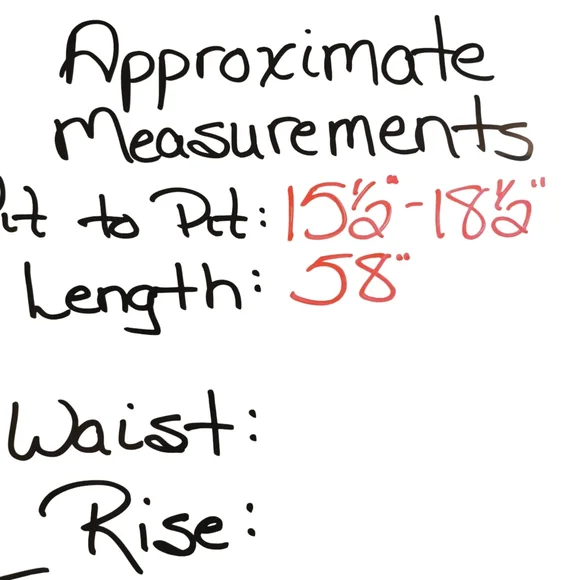 Approximate
Measurements
Pit to Pit: 15½" - 18½"
Length: 58"
Waist:
Rise: